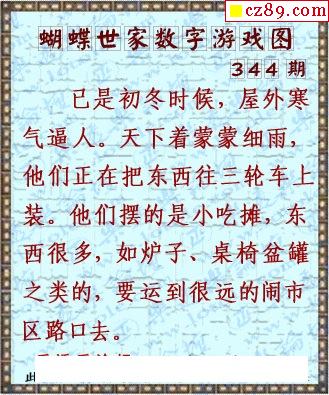 cz89.com
蝴蝶世家数字游戏图
344 期
已是初冬时候，屋外寒
气逼人。天下着蒙蒙细雨，
他们正在把东西往三轮车上
装。他们摆的是小吃摊，东
西很多，如炉子、桌椅盆罐
之类的，要运到很远的闹市
区路口去。